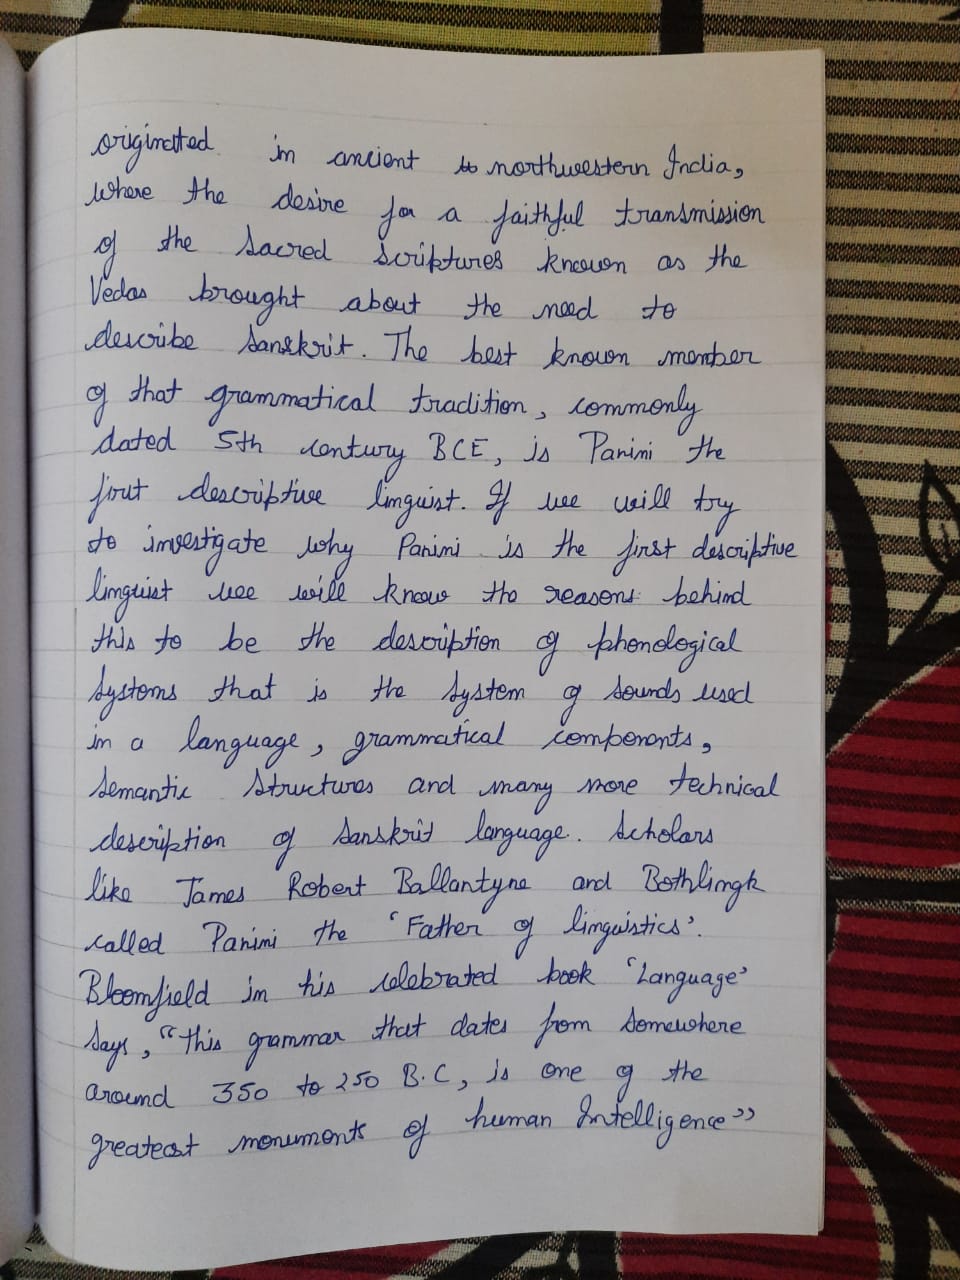 originated in ancient northwestern India,
where the desire for a faithful transmission
of the sacred scriptures known as the
Vedas brought about the need to
describe Sanskrit. The best known member
of that grammatical tradition, commonly
dated 5th century BCE, is Panini the
first descriptive linguist. If we will try
to investigate why Panini is the first descriptive
linguist we will know the reasons behind
this to be the description of phonological
systems that is the system of sounds used
in a language, grammatical components,
semantic structures and many more technical
description of Sanskrit language. Scholars
like James Robert Ballantyne and Bothlingk
called Panini the 'Father of linguistics'.
Bloomfield in his celebrated book 'Language'
says, "this grammar that dates from somewhere
around 350 to 250 B.C, is one of the
greatest monuments of human Intelligence"